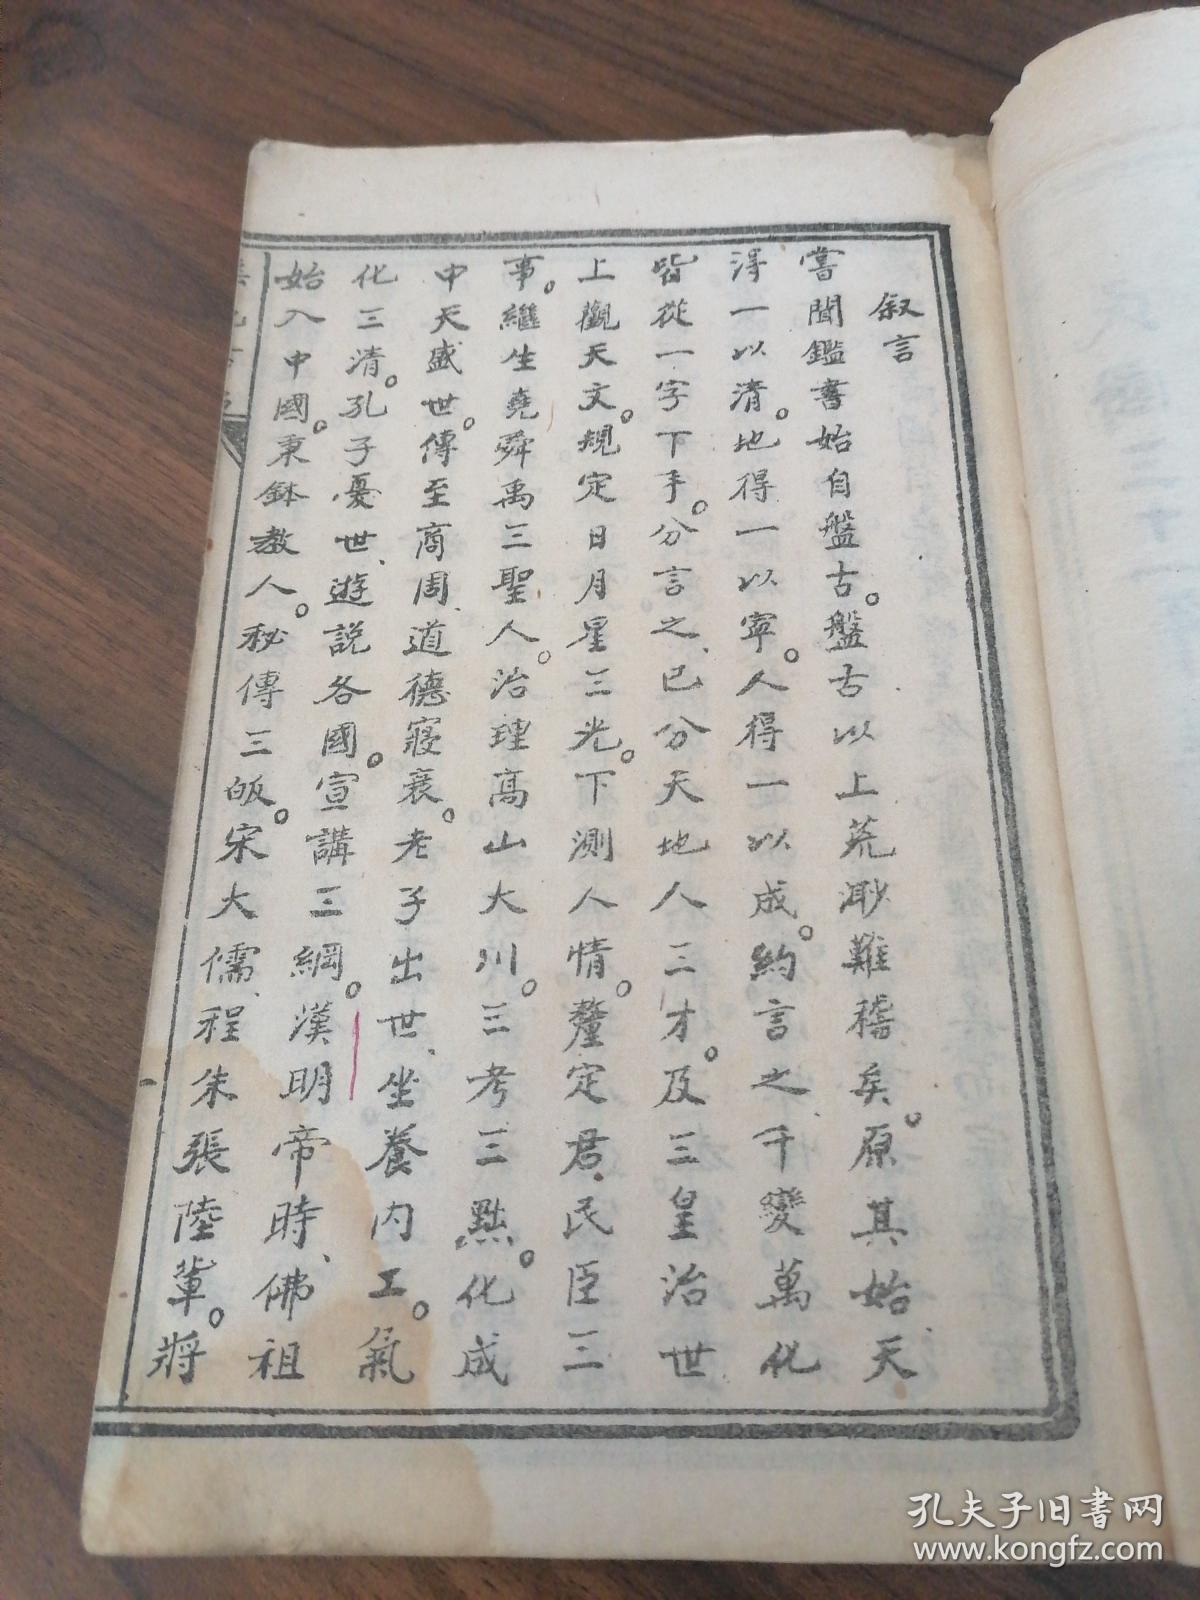 叙言
嘗聞鑑書始自盤古。盤古以上荒渺難稽矣。原其始天
得一以清。地得一以寧。人得一以成。約言之、千變萬化
皆從一字下手。分言之、已分天地人三才。及三皇治世
上觀天文。規定日月星三光。下測人情。釐定君民臣三
事。繼生堯舜禹三聖人。治理高山大川。三考三點。化成
中天盛世。傳至商周、道德寖衰。老子出世、坐養內工。氣
化三清。孔子憂世、遊説各國。宣講三綱。漢明帝時、佛祖
始入中國。東鉢教人。秘傳三皈。宋大儒、程朱張陸輩。將
孔夫子旧书网
www.kongfz.com